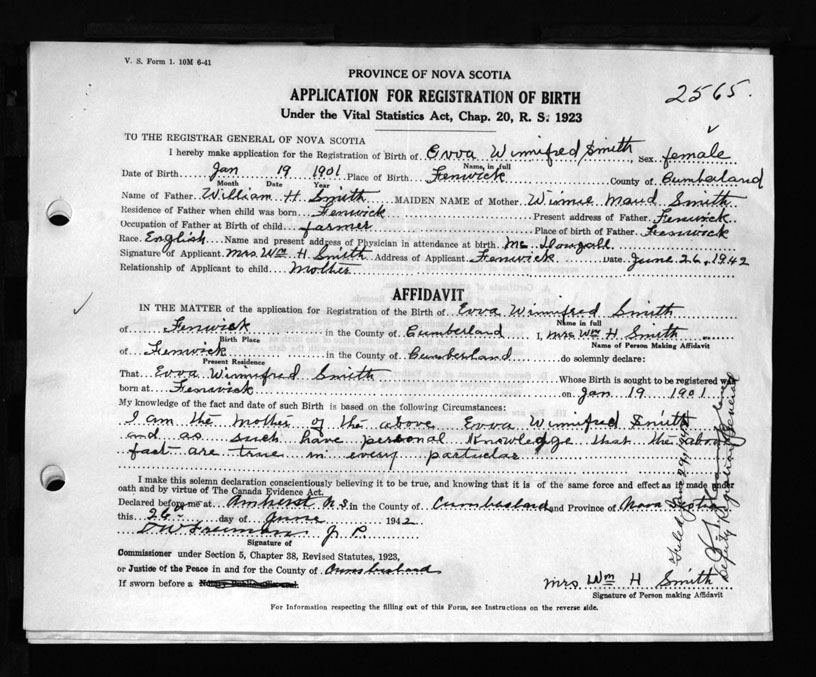 V. S. Form 1. 10M 6-41
PROVINCE OF NOVA SCOTIA
2565.
APPLICATION FOR REGISTRATION OF BIRTH
Under the Vital Statistics Act, Chap. 20, R. S. 1923
TO THE REGISTRAR GENERAL OF NOVA SCOTIA
I hereby make application for the Registration of Birth of Evva Winnifred Smith, Sex female
Name, in full
Date of Birth Jan 19 1901 Place of Birth Fenwick County of Cumberland
Month Date Year
Name of Father William H. Smith MAIDEN NAME of Mother Winnie Maud Smith
Residence of Father when child was born Fenwick Present address of Father Fenwick
Occupation of Father at Birth of child farmer Place of birth of Father Fenwick
Race English Name and present address of Physician in attendance at birth Mc Dougall
Signature of Applicant Mrs Wm H. Smith Address of Applicant Fenwick Date June 26, 1942
Relationship of Applicant to child Mother
AFFIDAVIT
IN THE MATTER of the application for Registration of the Birth of Evva Winnifred Smith
Name in full
of Fenwick in the County of Cumberland I, Mrs Wm H Smith
Birth Place Name of Person Making Affidavit
of Fenwick in the County of Cumberland do solemnly declare:
Present Residence
That Evva Winnifred Smith Whose Birth is sought to be registered was
born at Fenwick on Jan 19 1901
My knowledge of the fact and date of such Birth is based on the following Circumstances:
I am the Mother of the above Evva Winnifred Smith
and as such have personal knowledge that the above
fact are true in every particular
I make this solemn declaration conscientiously believing it to be true, and knowing that it is of the same force and effect as if made under
oath and by virtue of The Canada Evidence Act.
Declared before me at Amherst N.S. in the County of Cumberland and Province of Nova Scotia
this 26th day of June 1942
Freeman J. P.
Signature of
Commissioner under Section 5, Chapter 38, Revised Statutes, 1923,
or Justice of the Peace in and for the County of Cumberland
If sworn before a Notary Public use seal.
Mrs Wm H Smith
Signature of Person making Affidavit
For Information respecting the filling out of this Form, see Instructions on the reverse side.
Filed
Deputy Registrar General